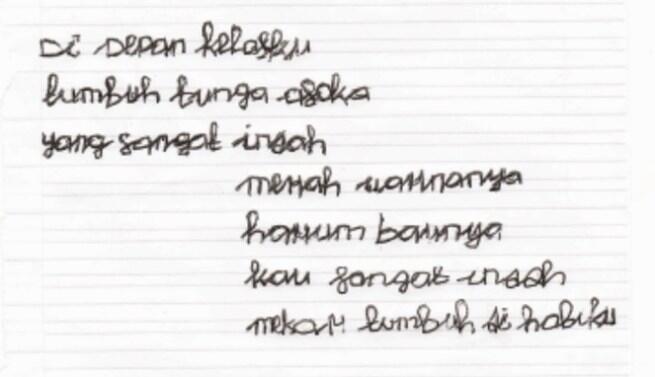 Di Depan kelasku
tumbuh bunga asoka
yang sangat indah
merah warnanya
harum baunya
kau sangat indah
mekar tumbuh di hatiku